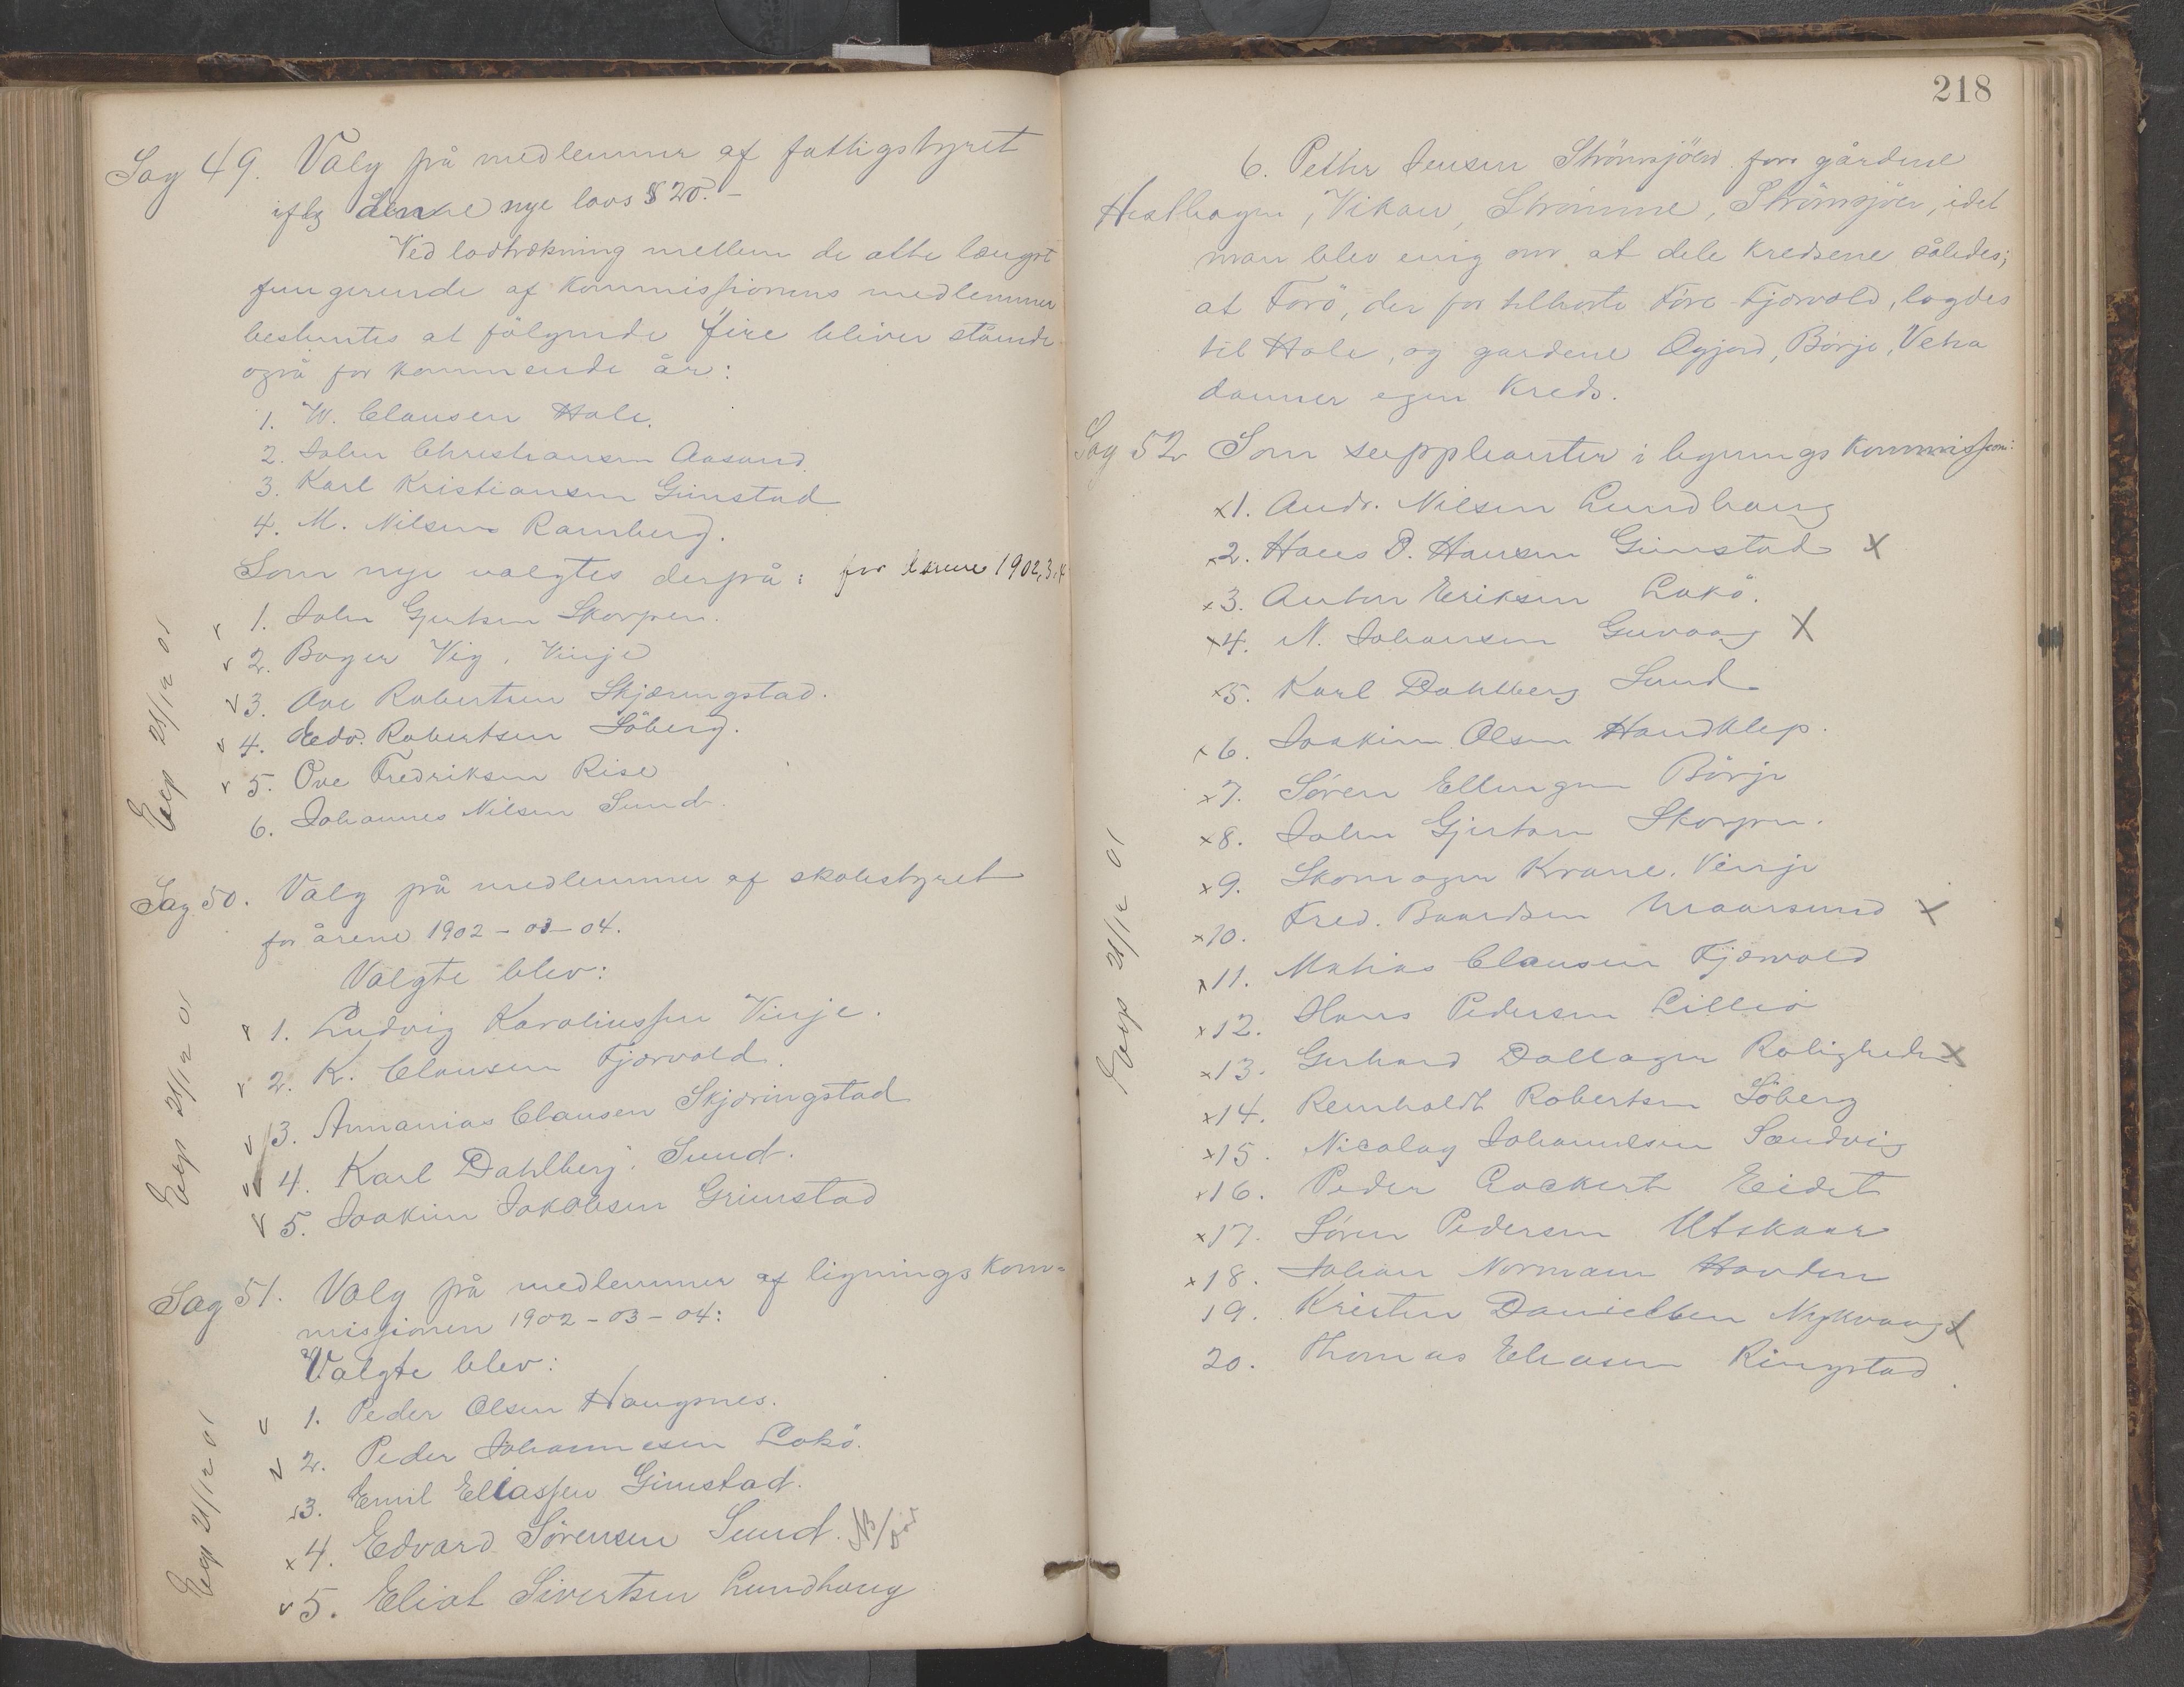 Sag 49. Valg på medlemmer af fattigstyret
iflg denne nye lovs § 20. –
Ved lodtrækning mellem de otte længst
fungerende af kommissionens medlemmer
bestemtes at følgende fire bliver stående
også for kommende år:
1. W. Clausen Hole.
2. John Christiansen Aasand.
3. Karl Kristiansen Gimstad
4. M. Nilsen Ramberg.
Som nye valgtes derpå: for årene 1902,3,4
1. John Gjertsen Skorpen.
2. Boger Vig, Vinje
3. Ove Robertsen Skjæringstad.
4. Edv. Robertsen Söberg.
5. Ove Fredriksen Rise
6. Johannes Nilsen Sund
Exp 21/12 01
Sag 50. Valg på medlemmer af skolestyret
for årene 1902 – 03 – 04.
Valgte blev:
1. Ludvig Karoliussen Vinje.
2. K. Clausen Fjærvold.
3. Annanias Clausen Skjæringstad
4. Karl Dahlberg. Sund.
5. Joakim Jakobsen Grimstad
Exp 21/12 01
Sag 51. Valg på medlemmer af ligningskom=
missionen 1902 – 03 – 04:
Valgte blev:
1. Peder Olsen Haugsnes.
2. Peder Johannesen Lokö.
3. Emil Eliassen Gimstad.
x 4. Edvard Sörensen Sund. NB/
5. Eliot Sivertsen Lundhaug
Exp 21/12 01
218
6. Petter Jensen Strömsjöen for gårdene
Hesthagen, Vikan, Strömme, Strömsjöen, idet
man blev enig om at dele kredsene således;
at Forö, der för tilhörte Före-Fjærvold, lagdes
til Hole, og gardene Ogjord, Börje, Vetra
danner egen kreds.
Sag 52 Som suppleanter i ligningskommission:
x1. Andr. Nilsen Lundhaug
x2. Hans P. Hansen Gimstad X
x3. Anton Eriksen Lokö.
x4. N. Johansen Guvaag X
x5. Karl Dahlberg Sund
x6. Joakim Olsen Handklep.
x7. Sören Ellingsen Börje
x8. John Gjertsen Skorpen.
x9. Skomager Krane. Vinje
x10. Fred. Baardsen Maarsund X
x11. Mathias Clausen Fjærvold
x12. Hans Pedersen Lilleö
x13. Gerhard Dallager Roligheden X
x14. Reinholdt Robertsen Söberg
x15. Nicolay Johannesen Sandvig
x16. Peder Lockert Eidet
x17. Sören Pedersen Utskaar
x18. Johan Normann Hovden
19. Kristen Danielsen Nykvaag X
20. Thomas Eliasen Ringstad
Exp 21/12 01